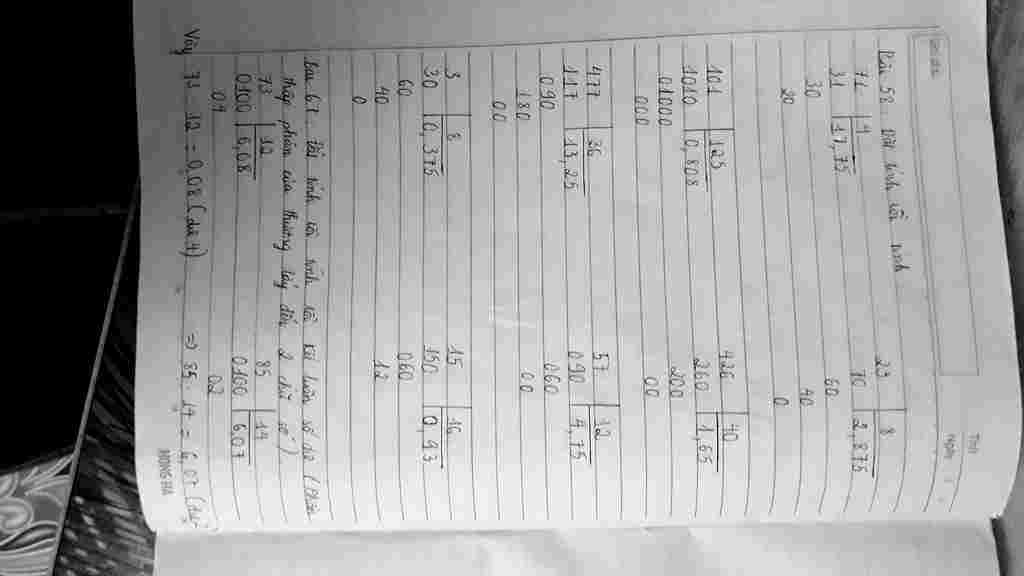 Bài 58. Đặt tính rồi tính
71 | 4    23 | 8
31 | 17,75    70 | 2,875
30    60
20    40
0
101 | 125    426 | 40
1010 | 0,808    260 | 1,65
01000    200
000    00
477 | 36    57 | 12
117 | 13,25    090 | 4,75
090    060
180    00
00
3 | 8    15 | 16
30 | 0,375    150 | 0,93
60    060
40    12
0
Bài 61. Đặt tính rồi tính rồi kết luận số dư (Phần
thập phân của thương lấy đến 2 chữ số)
73 | 12    85 | 14
0100 | 6,08    0100 | 6,07
04    02
Vậy 73 : 12 = 0,08 (dư 4)    => 85 : 14 = 6,07 (dư
MINGHA